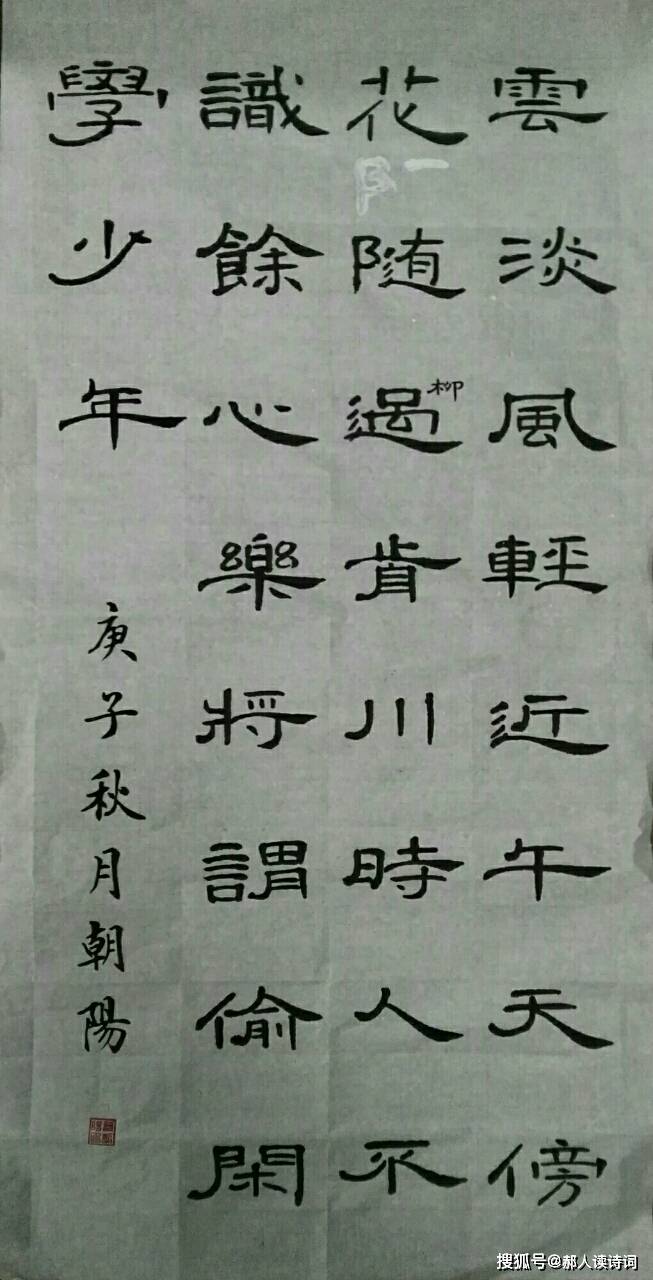 雲淡風輕近午天傍
花随柳過前川時人不
識餘心樂將謂偷閑
學少年
庚子秋月朝陽
搜狐号@郝人读诗词